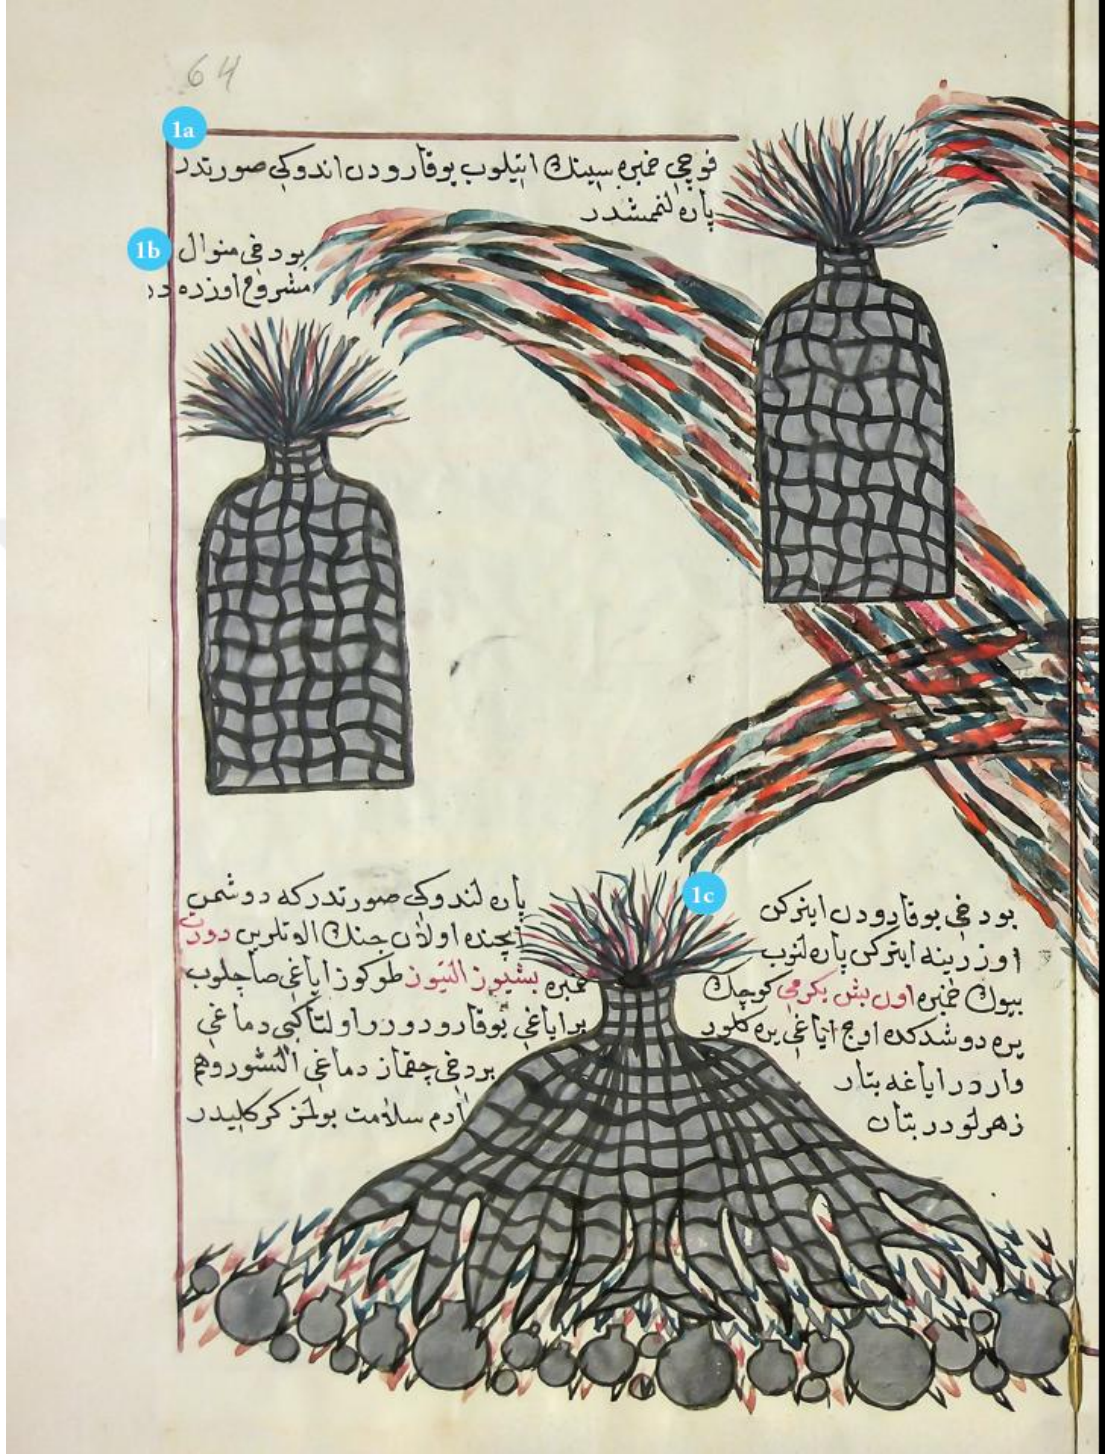 64
1a
فوچی خمبره سینك اتیلوب یوقارودن اندوکی صورتدر
پاره لنمشدر
1b
بودخی منوال
مشروح اوزره در
1c
بودخی یوقارودن اینرکن
اوزرینه اینرکن پاره لنوب
بیوك خمبره اون بش یکرمی کوچك
یره دوشدکده اوچ ایاغی یره کلور
واردر ایاغه بتار
زهرلودر بتان
پاره لندوکی صورتدرکه دوشمن
ایچنده اولان جنك الوتلرین دورت
خمبره بشیوز التیوز طوکوز ایاغی صاچلوب
برایاغی یوقارودورر اولتا کبی دماغی
بردخی چقماز دماغی التشور وهم
آدم سلامت بولمز کرکلیدر